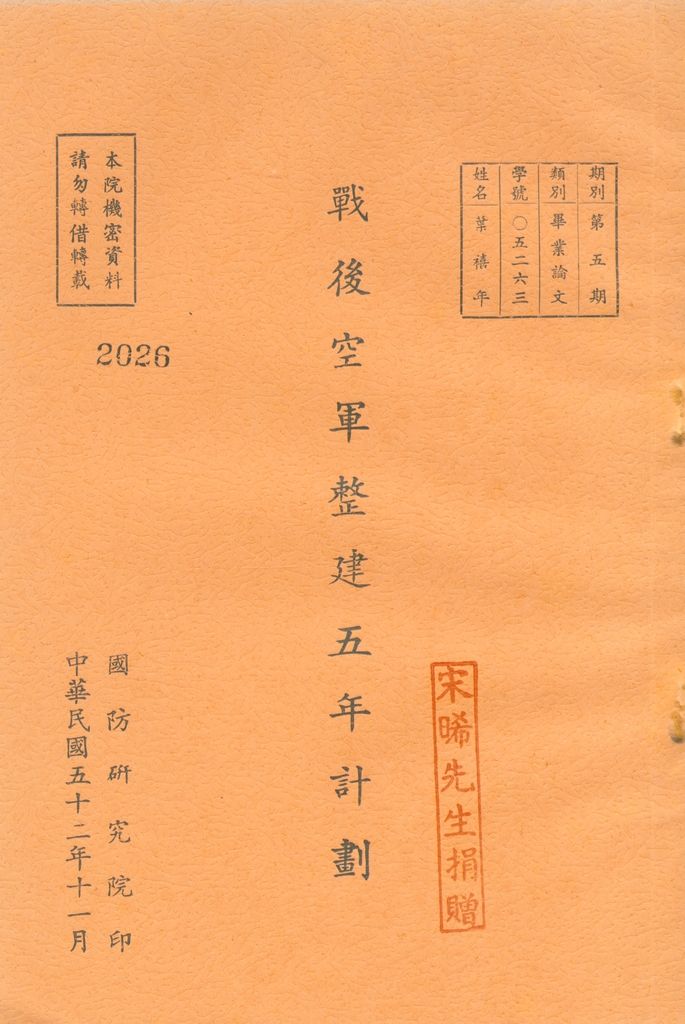 期別 第五期
類別 畢業論文
學號 〇五二六三
姓名 葉禧年
戰後空軍整建五年計劃
宋晞先生捐贈
本院機密資料
請勿轉借轉載
2026
國防研究院印
中華民國五十二年十一月